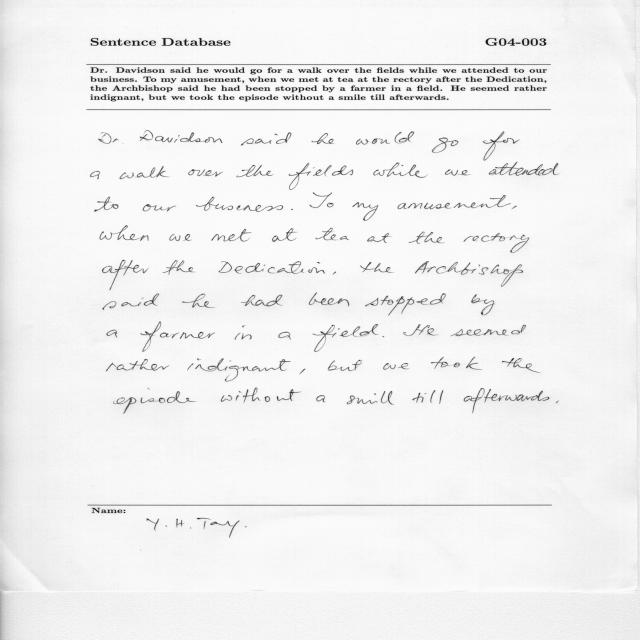 Sentence Database G04-003
Dr. Davidson said he would go for a walk over the fields while we attended to our
business. To my amusement, when we met at tea at the rectory after the Dedication,
the Archbishop said he had been stopped by a farmer in a field. He seemed rather
indignant, but we took the episode without a smile till afterwards.
Dr. Davidson said he would go for
a walk over the fields while we attended
to our buseness. To my amusement,
when we met at tea at the rectory
after the Dedication, the Archbishop
said he had been stopped by
a farmer in a field. He seemed
rather indignant, but we took the
episode without a smill till afterwards.
Name:
Y. H. Tay.